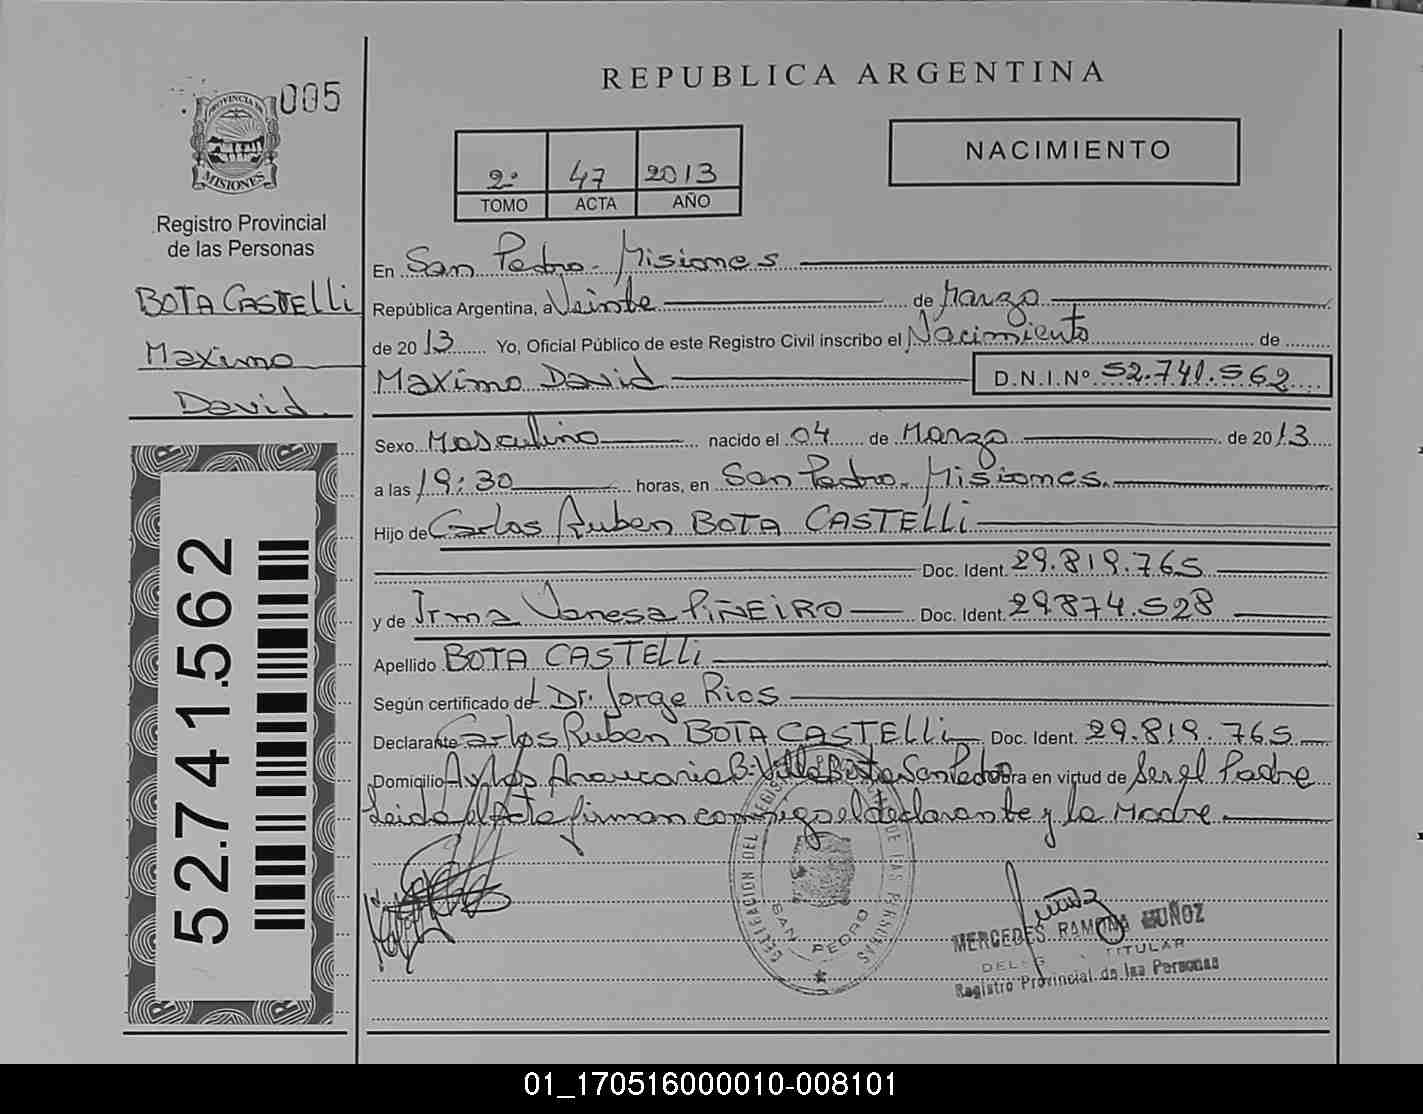 REPUBLICA ARGENTINA
005
PROVINCIA DE
MISIONES
Registro Provincial
de las Personas
BOTA CASTELLi
Maximo
David.
52.741.562
2º 47 2013
TOMO ACTA AÑO
NACIMIENTO
En San Pedro - Misiones
República Argentina, a Veinte de Marzo
de 2013 Yo, Oficial Público de este Registro Civil inscribo el Nacimiento de
Maximo David D.N.I.Nº 52.741.562
Sexo Masculino nacido el 04 de Marzo de 2013
a las 19:30 horas, en San Pedro - Misiones.
Hijo de Carlos Ruben BOTA CASTELLi
Doc. Ident. 29.819.765
y de Irma Vanesa PiÑEiRO Doc. Ident. 29.874.528
Apellido BOTA CASTELLi
Según certificado del Dr. Jorge Rios
Declarante Carlos Ruben BOTA CASTELLi Doc. Ident. 29.819.765
Domicilio Araucaria B. Villa San Pedro obra en virtud de Ser el Padre
Leida el Acta firman conmigo el declarante y la Madre
DELEGACION DEL REGISTRO DE LAS PERSONAS
SAN PEDRO
MERCEDES RAMONA MUÑOZ
TITULAR
Registro Provincial de las Personas
01_170516000010-008101